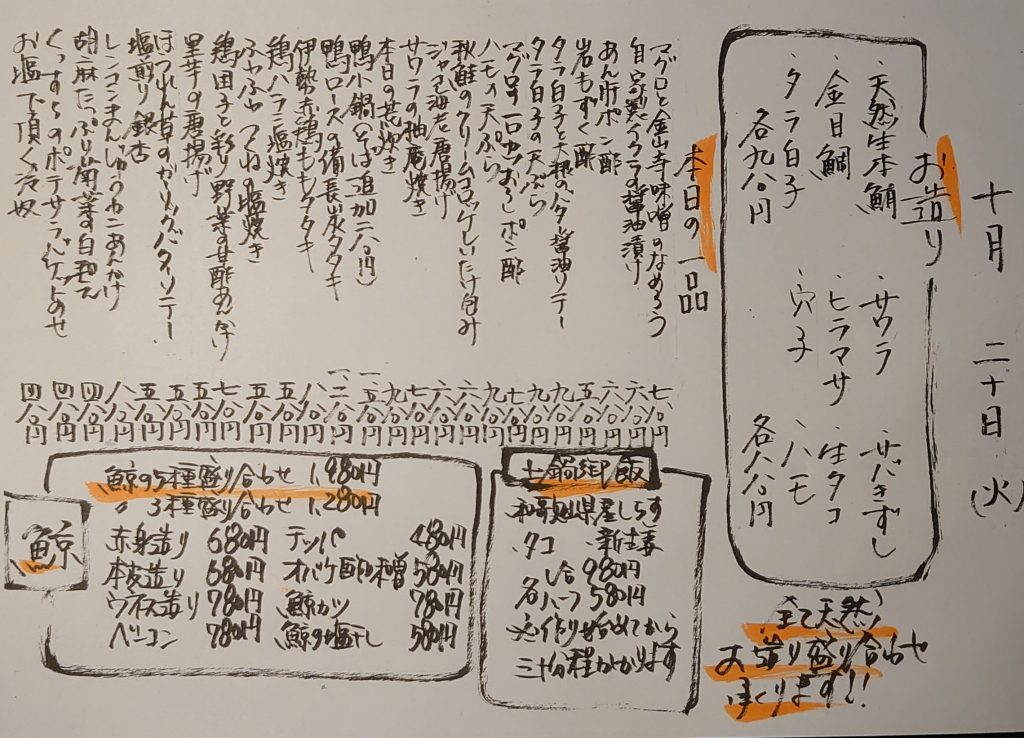 十月 二十日 (火)
お造り
・天然生本鮪 ・サワラ ・サバきずし
・金目鯛 ・ヒラマサ ・生タコ
・タラ白子 ・穴子 ・ハモ
各九八〇円 各八八〇円
全て天然♪
お造り盛り合わせ
つくります!!
本日の一品
マグロと金山寺味噌のなめろう 七八〇円
自家製イクラの醤油漬け 六八〇円
あん肝ポン酢 六八〇円
岩もずく酢 五八〇円
タラ白子と大根のバター醤油ソテー 九八〇円
タラ白子の天ぷら 九八〇円
マグロの一口カツおろしポン酢 七八〇円
ハモの天ぷら 九八〇円
秋鮭のクリームコロッケしいたけ包み 六八〇円
ジャコ海老唐揚げ 六八〇円
サワラの柚庵焼き 七八〇円
本日の煮炊き 九八〇円
鴨小鍋(そば追加二八〇円) 一、五八〇円
鴨ロースの備長炭タタキ 一、二八〇円
伊勢赤鶏ももタタキ 八八〇円
鶏ハラミ塩焼き 五八〇円
ふわふわつくねの塩焼き 五八〇円
鶏団子と彩り野菜の甘酢あんかけ 七八〇円
里芋の唐揚げ 五八〇円
ほうれん草のガーリックバターソテー 五八〇円
塩煎り銀杏 五八〇円
レンコンまんじゅうカニあんかけ 八八〇円
胡麻たっぷり菊菜の白和え 四八〇円
くんすらのポテサラバゲットのせ 四八〇円
お塩で頂く冷奴 四八〇円
土鍋御飯
和歌山県産しらす
タコ ・新生姜
1合 980円
各ハーフ 580円
※作り始めてから
三十分程かかります
鯨
鯨の5種盛り合わせ 1,980円
〃 3種盛り合わせ 1,280円
赤身造り 680円 テッパ 480円
本皮造り 680円 オバケ酢味噌 580円
ウネス造り 780円 鯨カツ 780円
ベーコン 780円 鯨の塩干し 580円